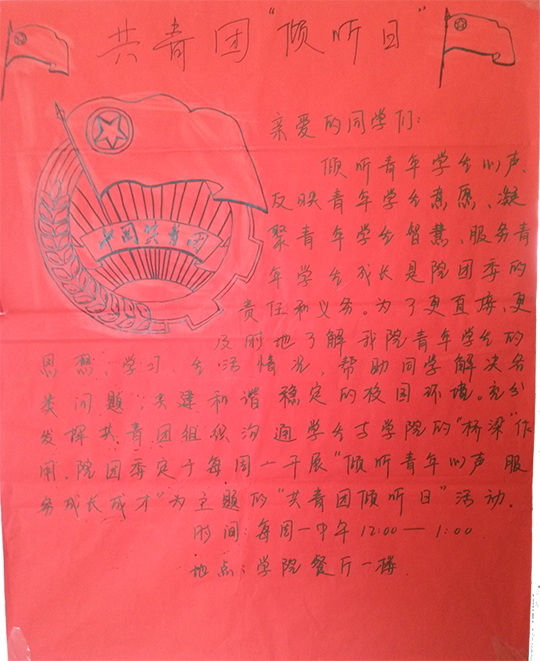 共青团“倾听日”
中国共青团
亲爱的同学们：
倾听青年学生心声、
反映青年学生意愿、凝
聚青年学生智慧、服务青
年学生成长是院团委的
责任和义务。为了更直接、更
及时地了解我院青年学生的
思想、学习、生活情况，帮助同学解决各
类问题，共建和谐稳定的校园环境。充分
发挥共青团组织沟通学生与学院的“桥梁”作
用，院团委定于每周一开展“倾听青年心声 服
务成长成才”为主题的“共青团倾听日”活动。
时间：每周一中午12:00—1:00
地点：学院餐厅一楼